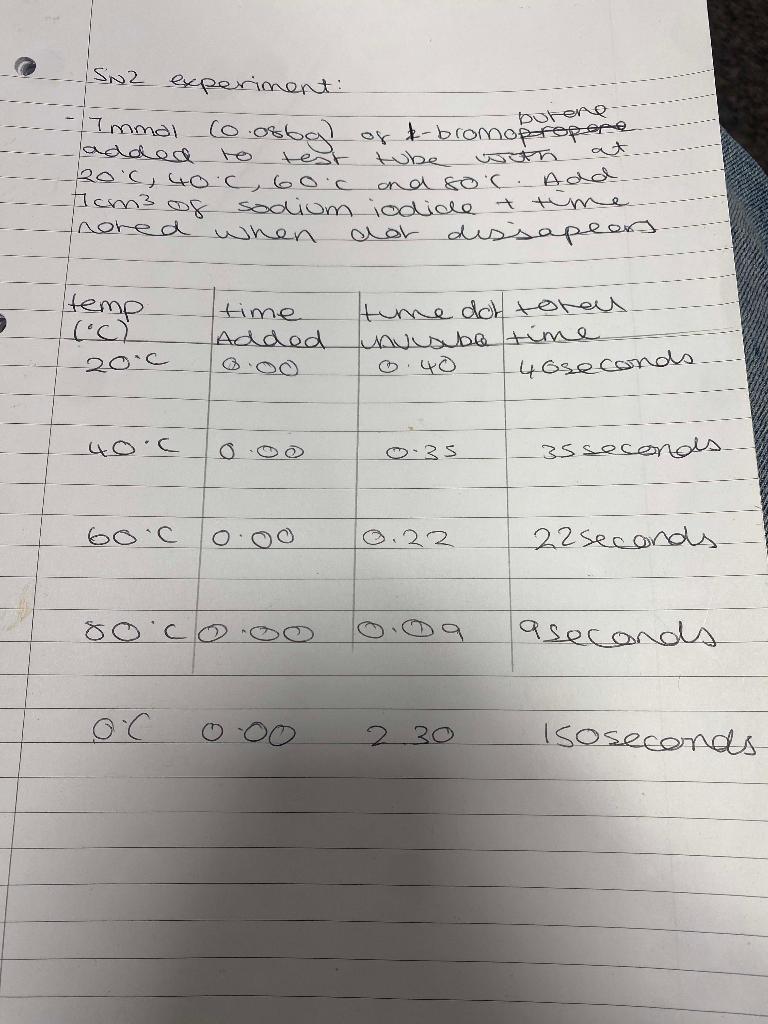 SN2 experiment:
butene
- 1mmol (0.086g) of 1-bromopropene
added to test tube with at
20°C, 40°C, 60°C and 80°C. Add
1cm3 of sodium iodide + time
noted when dot dissapears
temp time time dot total
(°C) Added invisibe time
20°C 0.00 0.40 40seconds
40°C 0.00 0.35 35seconds
60°C 0.00 0.22 22seconds
80°C 0.00 0.09 9seconds
0°C 0.00 2.30 150seconds